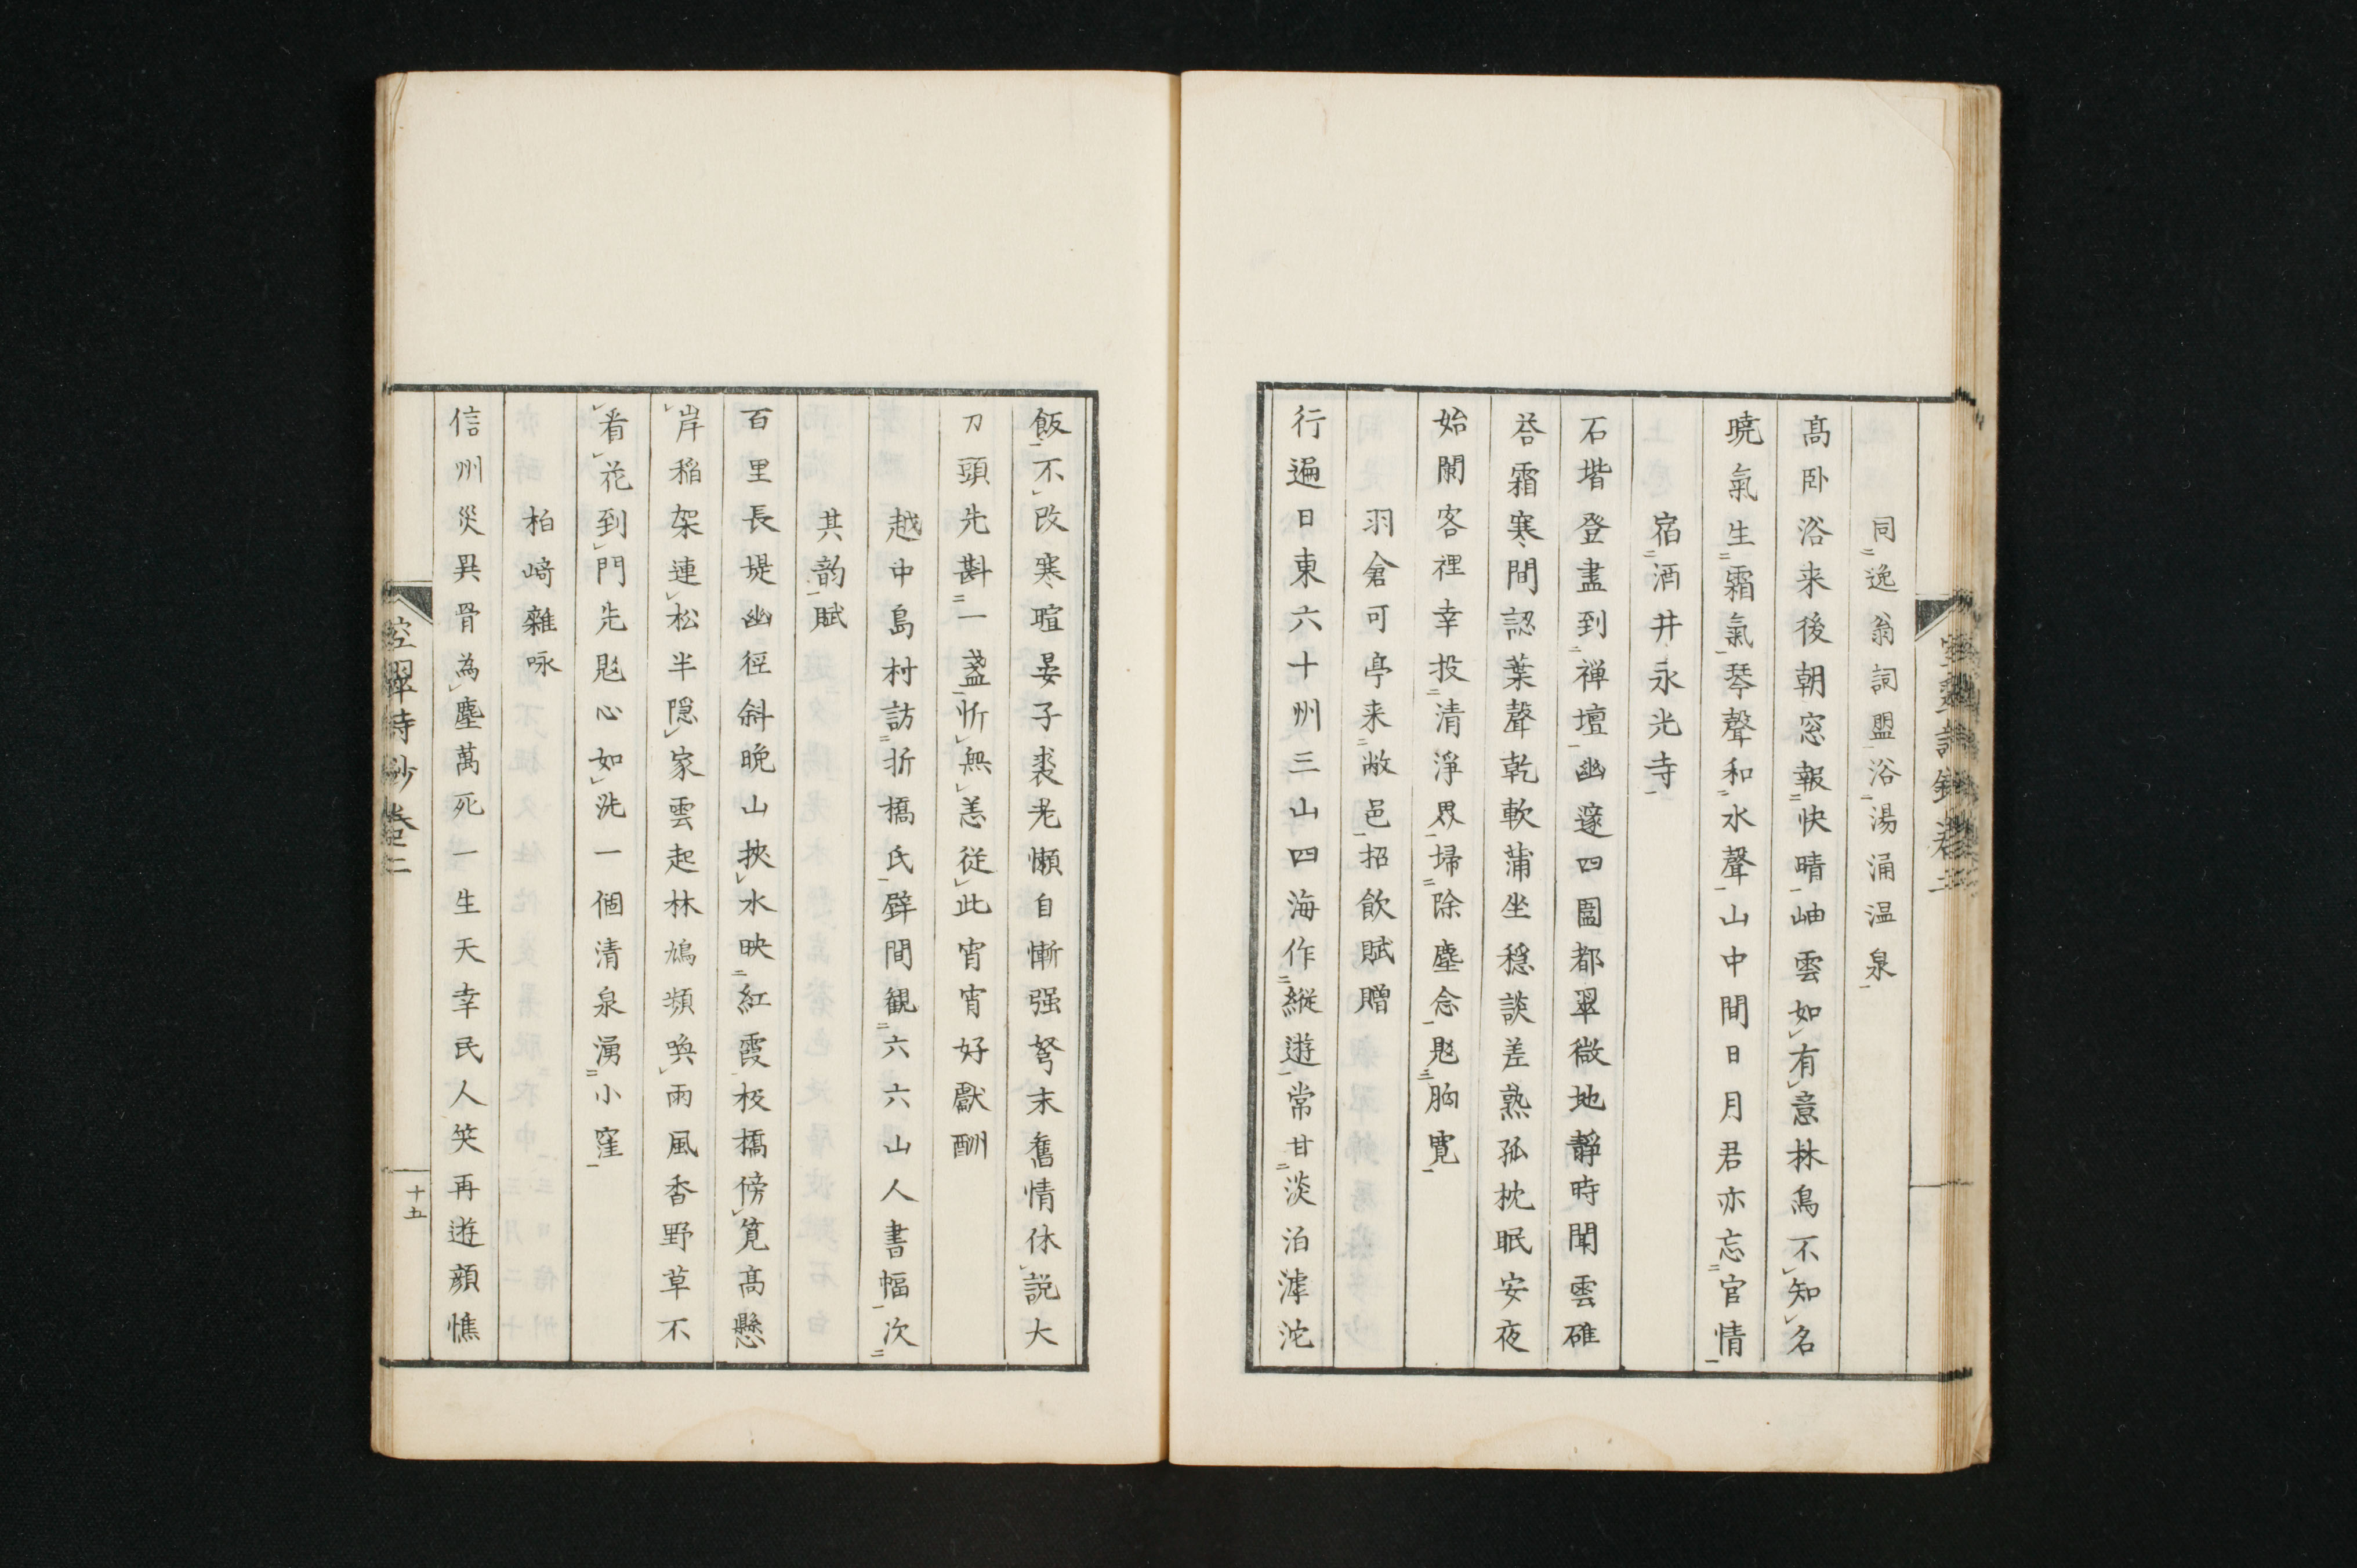 同逸翁詞盟浴湯涌温泉
高卧浴来後朝窓報快晴岫雲如有意林鳥不知名
暁氣生霜氣琴聲和水聲山中間日月君亦忘官情
宿酒井永光寺
石堦登盡到禅壇幽邃四圍都翠微地靜時聞雲碓
答霜寒間認葉聲乾軟蒲坐穏談差熟孤枕眠安夜
始闌客裡幸投清淨界掃除塵念覐胸寛
羽倉可亭来敝邑招飲賦贈
行遍日東六十州三山四海作縦遊常甘淡泊滹沱
飯不改寒暄晏子裘老懶自慚强弩末奮情休説大
刀頭先斟一盞忻無恙従此宵宵好獻酬
越中島村訪折橋氏壁間観六六山人書幅次
其韵賦
百里長堤幽徑斜晩山挾水映紅霞板橋傍筧高懸
岸稲架連松半隠家雲起林鳩頻喚雨風香野草不
看花到門先覐心如洗一個清泉湧小窪
柏﨑雜咏
信州災異骨為塵萬死一生天幸民人笑再遊顔憔
空翠詩鈔卷二
十五